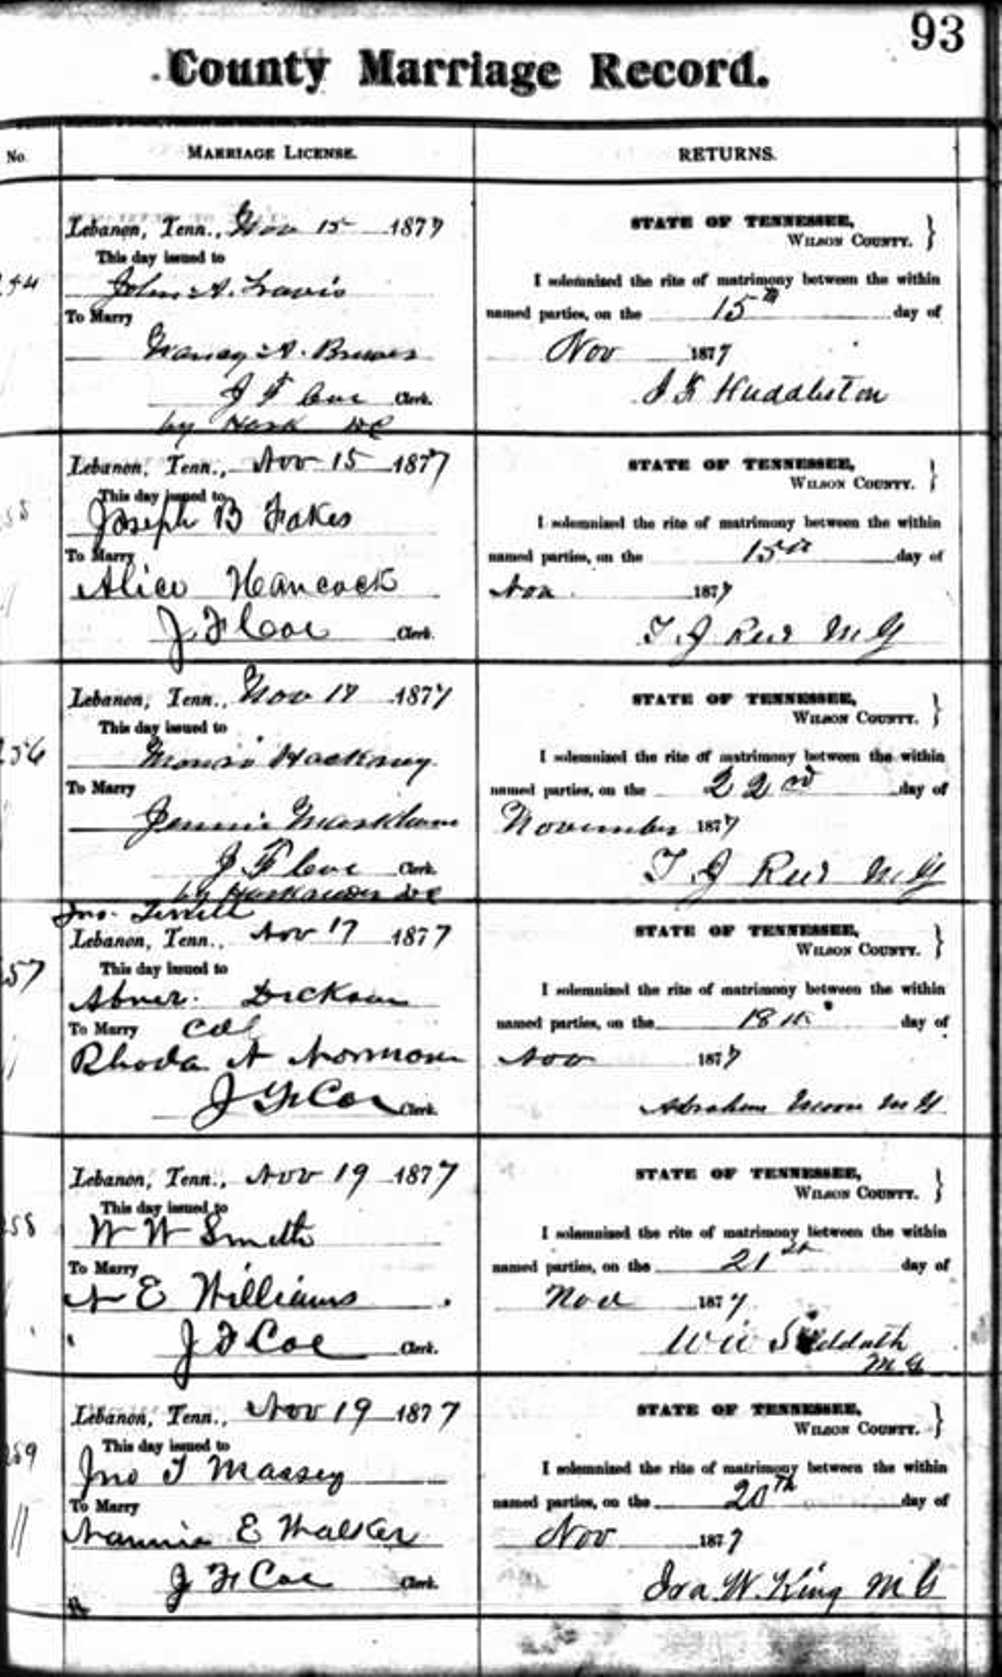 93
County Marriage Record.
No. MARRIAGE LICENSE. RETURNS.
Lebanon, Tenn., Nov 15 1877
This day issued to
John A. Travis
To Marry
Nancy A. Brewer
J F Coe Clerk.
by DC
STATE OF TENNESSEE,
WILSON COUNTY.
I solemnized the rite of matrimony between the within
named parties, on the 15th day of
Nov 1877
J K Huddleston
Lebanon, Tenn., Nov 15 1877
This day issued to
Joseph B Fakes
To Marry
Alice Hancock
J. F Coe Clerk.
STATE OF TENNESSEE,
WILSON COUNTY.
I solemnized the rite of matrimony between the within
named parties, on the 15th day of
Nov. 1877
T J M G
256
Lebanon, Tenn., Nov 1877
This day issued to
Hackney
To Marry
Jennie Markham
J F Coe Clerk.
by DC
STATE OF TENNESSEE,
WILSON COUNTY.
I solemnized the rite of matrimony between the within
named parties, on the 22nd day of
November 1877
T J M G
257
Jno. Terrell
Lebanon, Tenn., Nov 17 1877
This day issued to
Abner Dickson
To Marry Col
Rhoda A Norman
J F Coe Clerk.
STATE OF TENNESSEE,
WILSON COUNTY.
I solemnized the rite of matrimony between the within
named parties, on the 18th day of
Nov 1877
Abraham Moore M G
258
Lebanon, Tenn., Nov 19 1877
This day issued to
W W Smith
To Marry
N E Williams
J F Coe Clerk.
STATE OF TENNESSEE,
WILSON COUNTY.
I solemnized the rite of matrimony between the within
named parties, on the 21st day of
Nov 1877
W W Suddath
M. G
259
Lebanon, Tenn., Nov 19 1877
This day issued to
Jno T Massey
To Marry
Nannie E Walker
J F Coe Clerk.
STATE OF TENNESSEE,
WILSON COUNTY.
I solemnized the rite of matrimony between the within
named parties, on the 20th day of
Nov 1877
Ira W. King M G